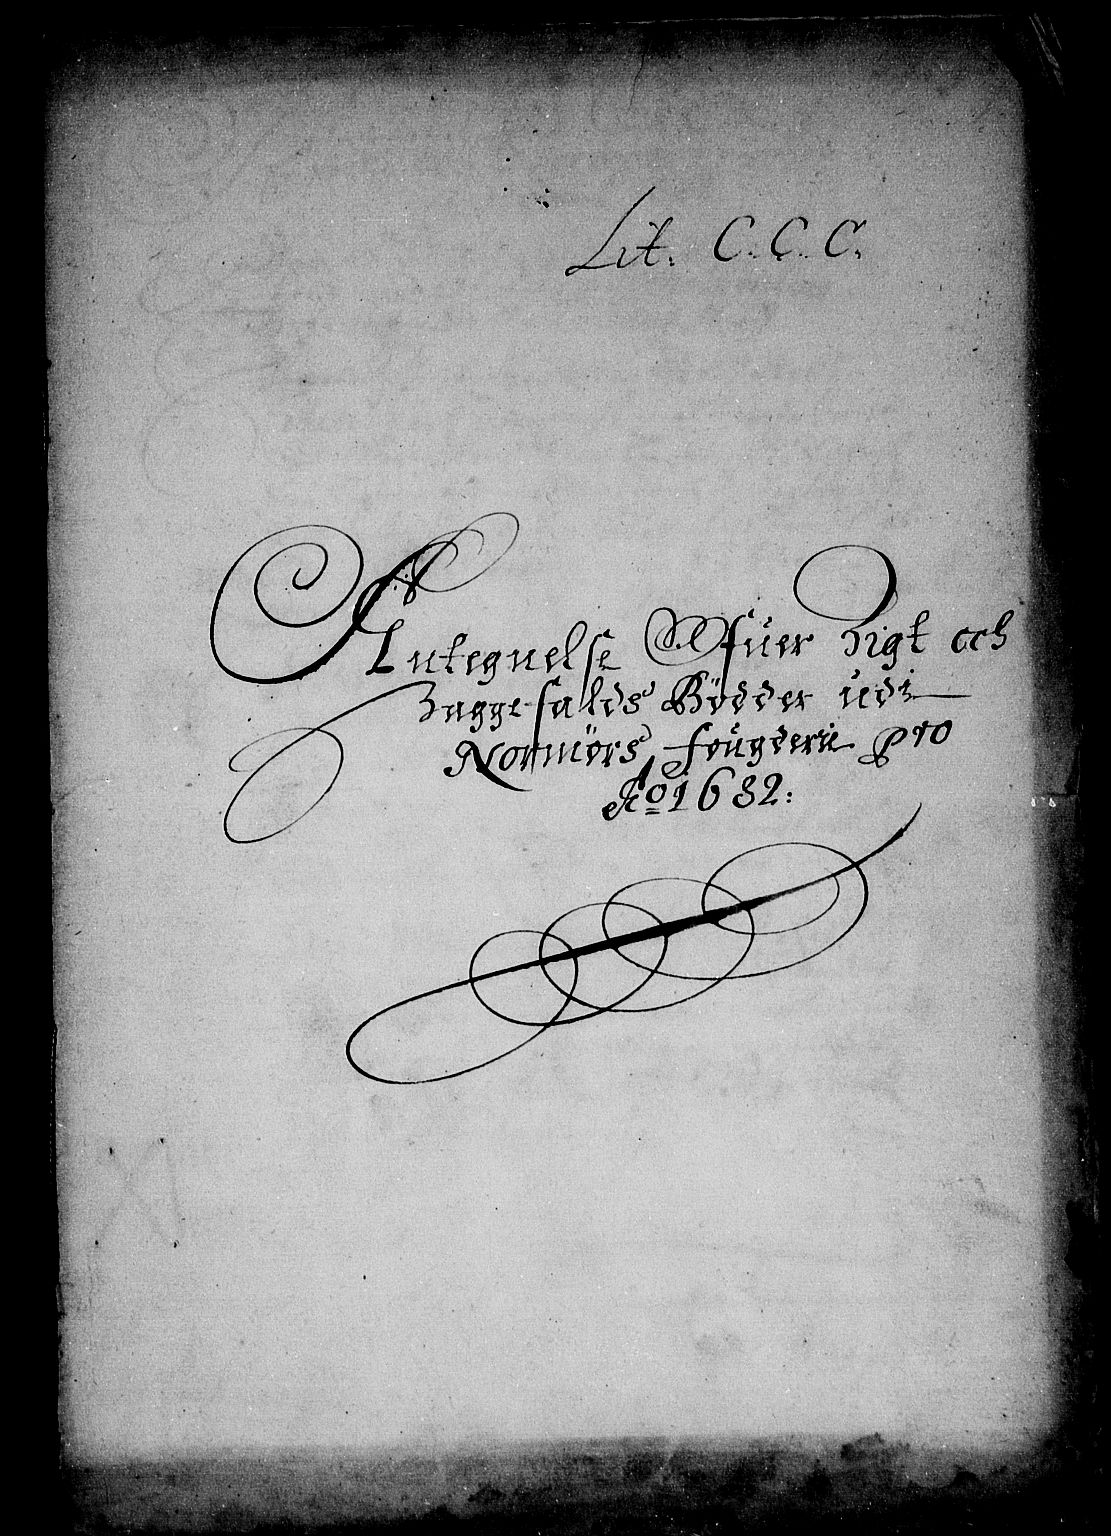 Lit. C. C. C.
Antegnelse Ofuer Sigt och
Saggefalds Bödder udi
Normörs fougderie pro
Ao 1682: